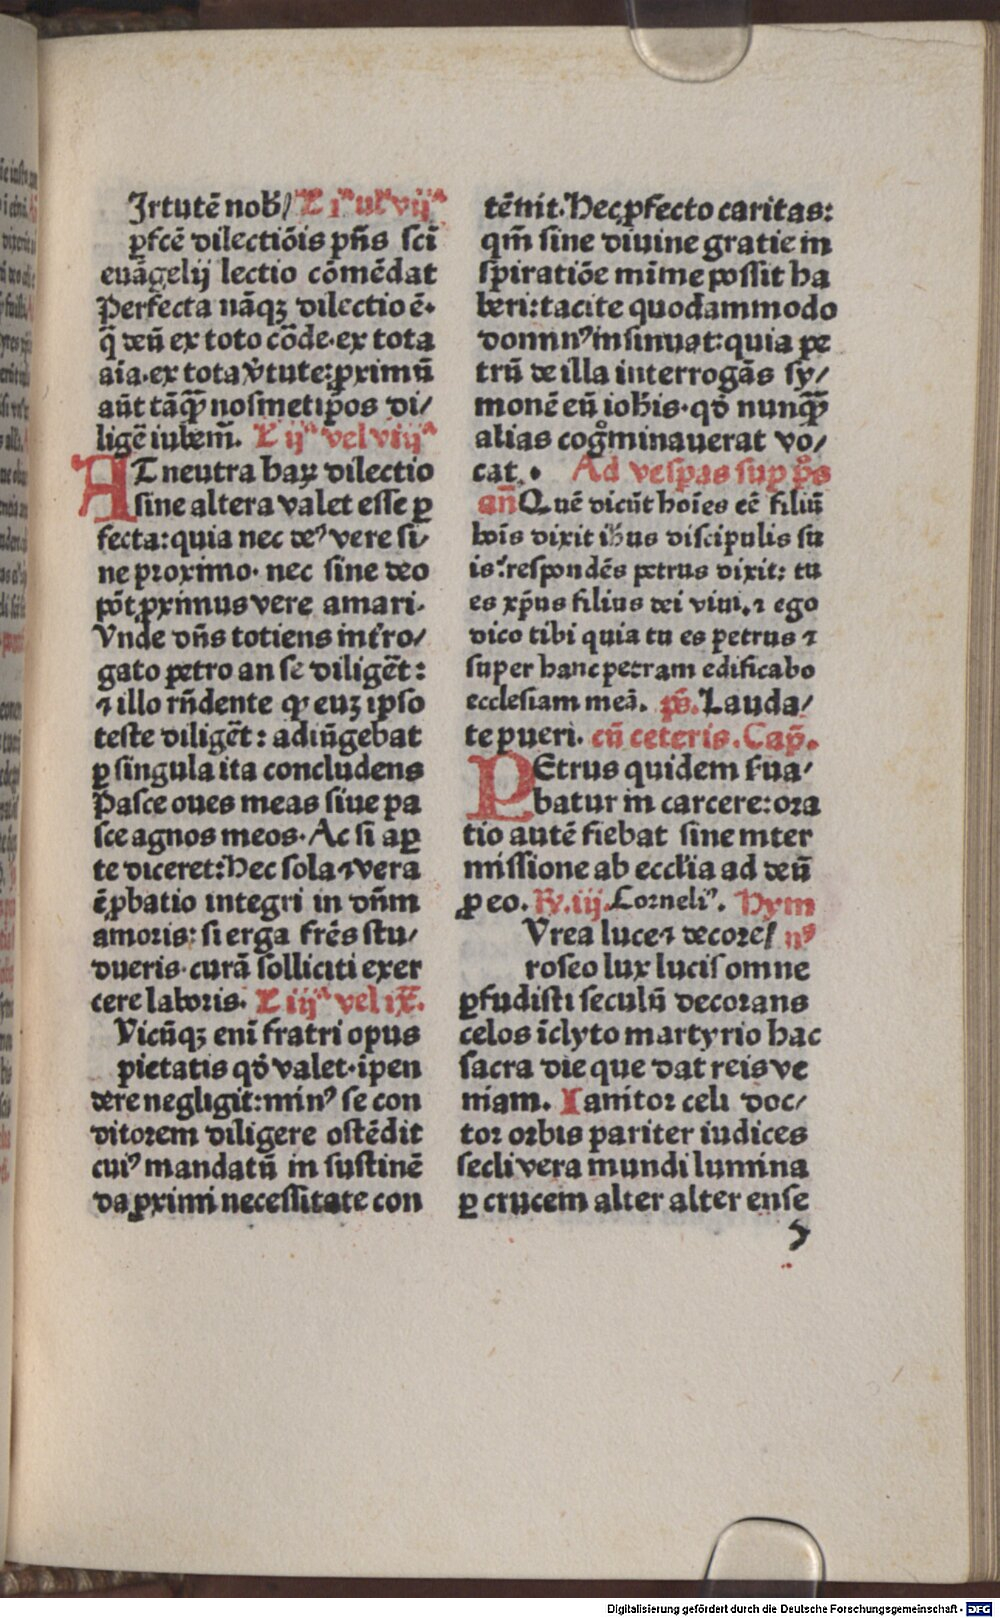 Jrtutē nob̄/ L̄ iª ul' vijª
ꝑfcē dilectiōis pn̄s sci
euāgelij lectio cōmēdat
Perfecta nāqꝫ dilectio ē·
q̄ deū ex toto cōde·ex tota
aīa·ex tota v̄tute:ꝓximū
aūt tāqꝫ nosmetip̄os di/
ligē iubem̄. L̄ ijª vel viijª
AT neutra haꝝ dilectio
sine altera valet esse ꝑ
fecta:quia nec deꝰ vere si/
ne proximo· nec sine deo
pōt ꝓximus vere amari·
Vnde dn̄s totiens int̄ro/
gato petro an se diligēt:
⁊ illo rn̄dente ꝙ euꝫ ipso
teste diligēt: adiūgebat
ꝑ singula ita concludens
Pasce oues meas siue pa
sce agnos meos·Ac si aꝑ
te diceret:Hec sola ⁊ vera
ē ꝓbatio integri in dn̄m
amoris: si erga fr̄es stu/
dueris·curā solliciti exer
cere laboris. L̄ iijª vel ix̄.
Vicūqꝫ enī fratri opus
pietatis qd̄ valet·ipen
dere negligit:minꝰ se con
ditorem diligere ostēdit
cuiꝰ mandatū in sustinē
da ꝓximi necessitate con
tēnit.Hec ꝓfecto caritas:
qm̄ sine diuine gratie in
spiratiōe mīme possit ha
beri:tacite quodammodo
dominꝰ insinuat:quia pe
trū de illa interrogās sy/
monē eū ioh̄is·qd̄ nunqꝫ
alias cognominauerat vo/
cat. Ad vesꝑas suꝑ p̄s
an̄ Quē dicūt hoīes eē filiū
hoīs dixit ih̄us discipulis su
is:respondēs petrus dixit: tu
es xp̄us filius dei viui.⁊ ego
dico tibi quia tu es petrus ⁊
super hanc petram edificabo
ecclesiam meā. p̄s. Lauda/
te pueri. cū ceteris. Cap̄.
PEtrus quidem sꝰua/
batur in carcere:ora
tio autē fiebat sine inter
missione ab ecclīa ad deū
ꝓ eo. Rv̄.iij. Corneliꝰ. Hym
Vrea luce ⁊ decore/ nꝰ
roseo lux lucis omne
ꝑfudisti seculū decorans
celos īclyto martyrio hac
sacra die que dat reis ve
niam. Janitor celi doc/
tor orbis pariter iudices
secli vera mundi lumina
ꝑ crucem alter alter ense